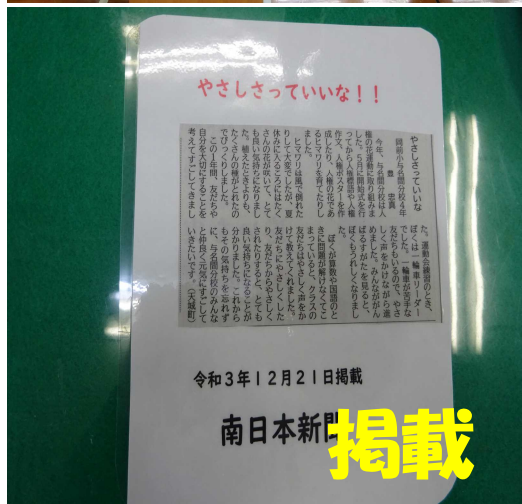 やさしさっていいな！！
やさしさっていいな
岡前小与名間分校４年
豊　忠真
今年、与名間分校は人
権の花運動に取り組みま
した。５月に開始式を行
ってから人権標語や人権
作文、人権ポスターを作
成したり、人権の花であ
るヒマワリを育てたりし
ました。
ヒマワリは風で倒れた
りして大変でしたが、夏
休みに入るころにはたく
さんの花が咲いて、とて
も良い気持ちになりまし
た。植えたときよりも、
たくさんの種がとれたの
でびっくりしました。
この１年間、友だちや
自分を大切にすることを
考えてすごしてきまし
た。運動会練習のとき、
ぼくは一輪車リーダー
でした。一輪車が苦手な
友だちもいるので、やさ
しく声をかけながら進
めました。みんながん
ばるすがたを見ると、
ぼくもうれしくなりまし
た。
ぼくが算数や国語のと
きに問題が解けなくてこ
まっていると、クラスの
友だちはやさしく声をか
けて教えてくれました。
友だちにやさしくした
り、友だちからやさしく
されたりすると、とても
良い気持ちになることが
分かりました。これから
もその気持ちを忘れず
に、与名間分校のみんな
と仲良く元気にすごして
いきたいです。（天城町）
令和３年１２月２１日掲載
南日本新聞
掲載